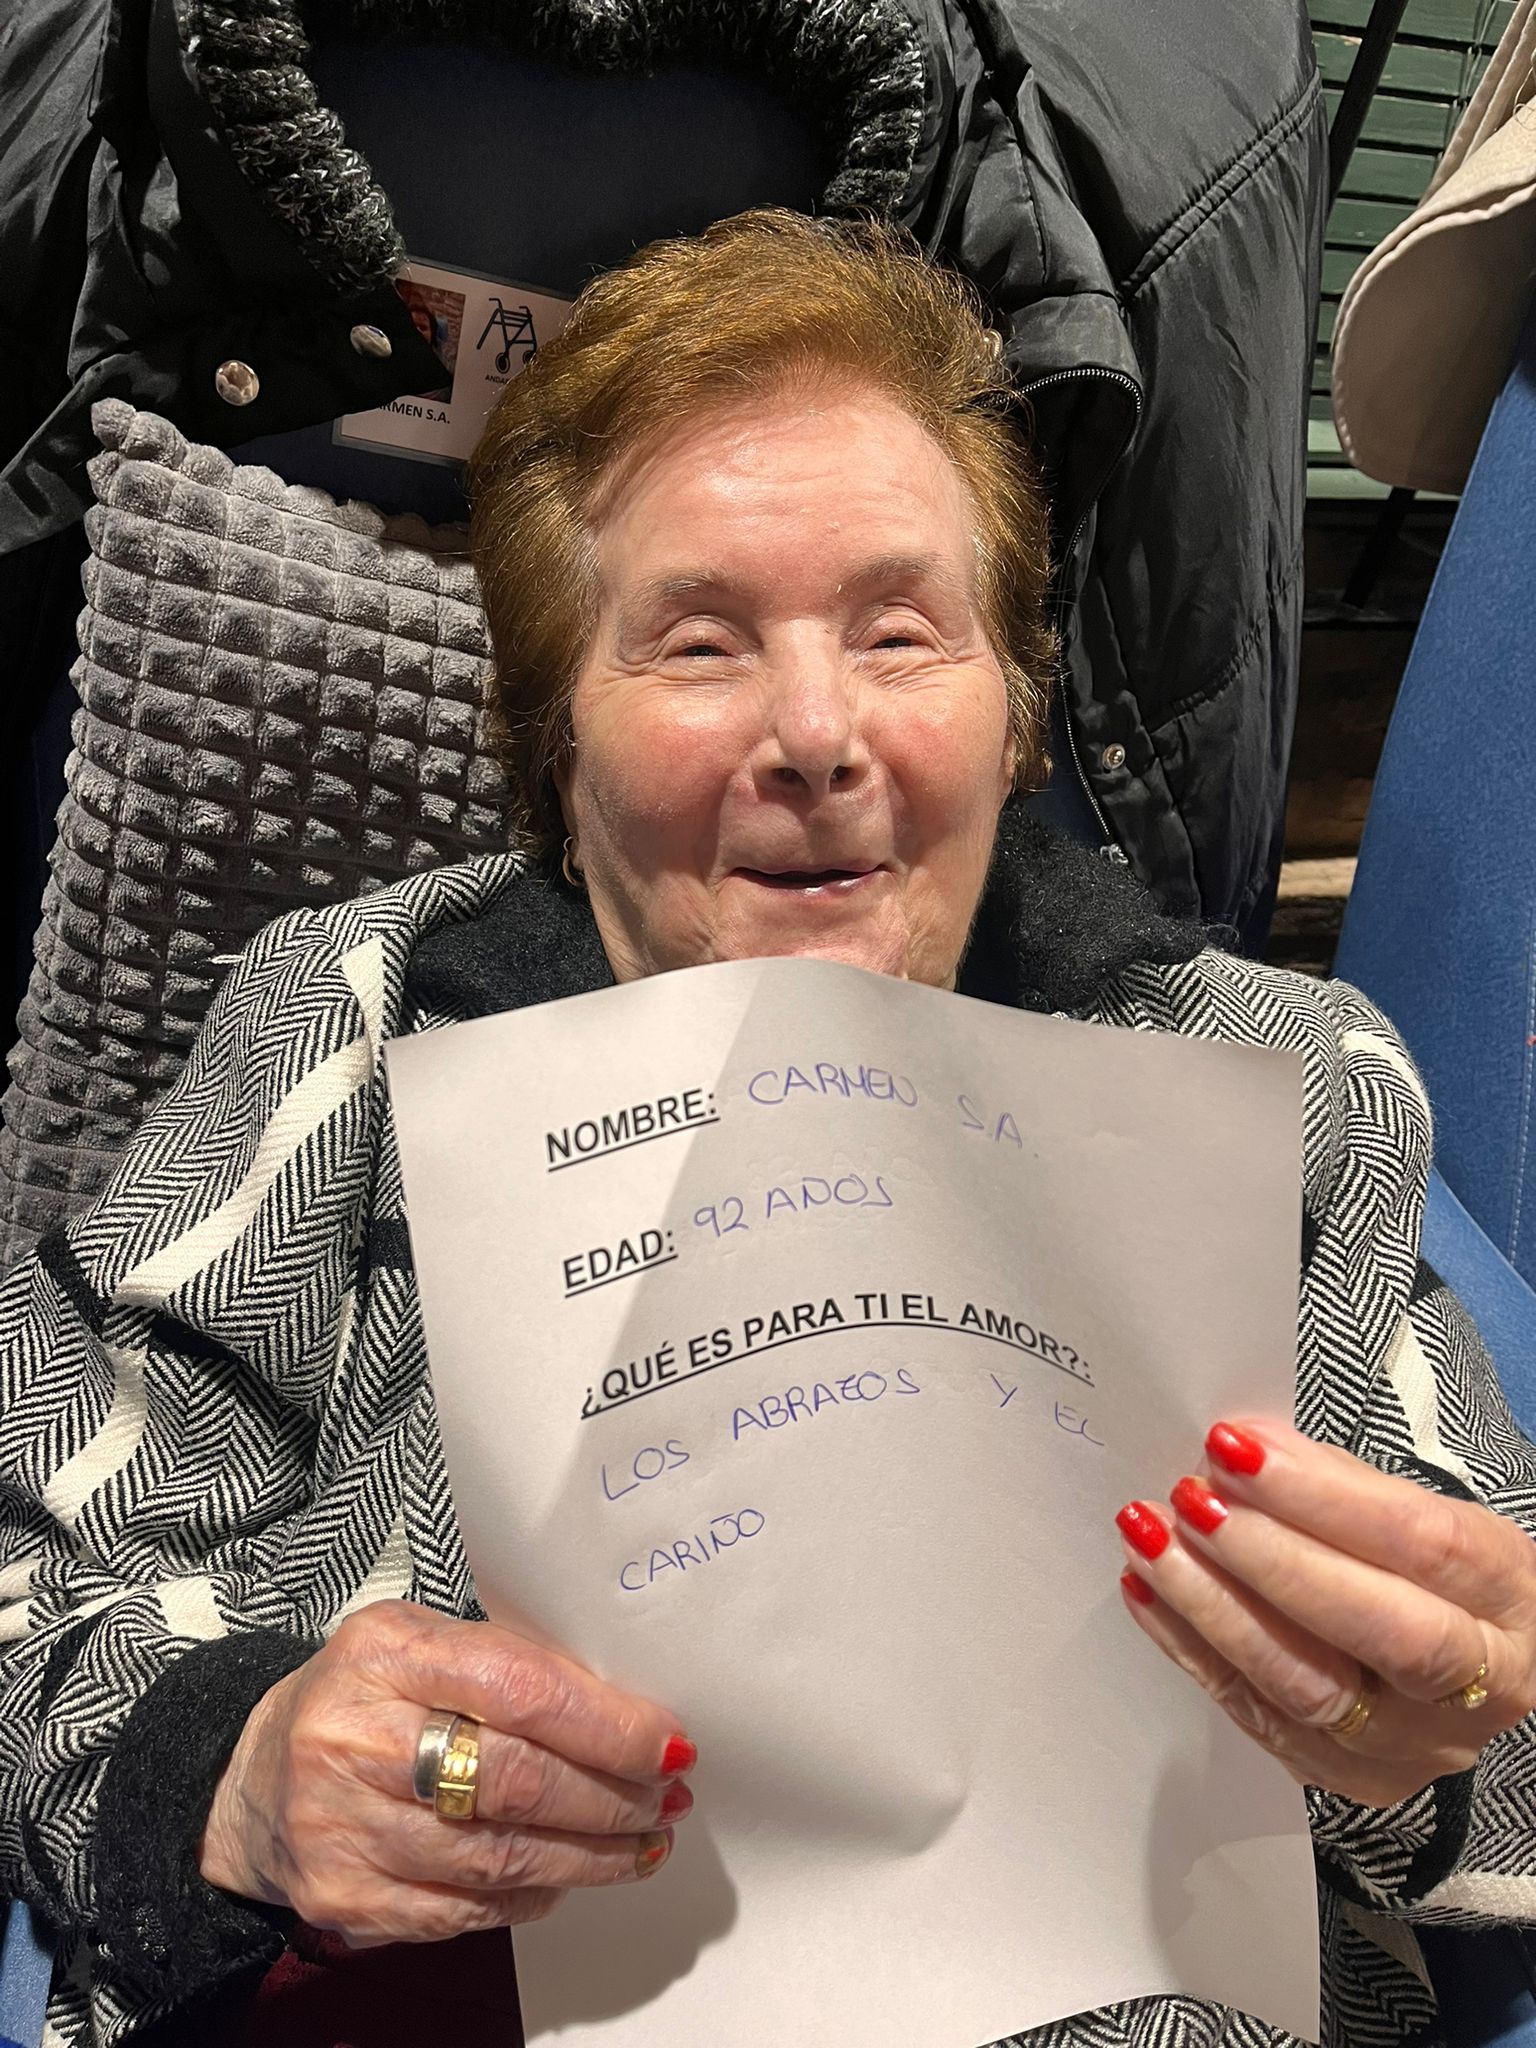 ARMEN S.A.
NOMBRE: CARMEN S.A.
EDAD: 92 AÑOS
¿QUÉ ES PARA TI EL AMOR?:
LOS ABRAZOS Y EL
CARIÑO